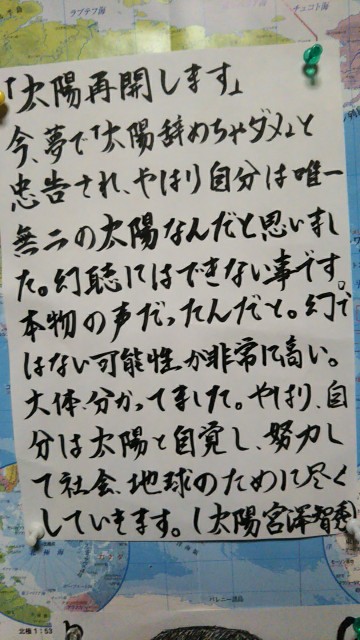 ラプテフ海
チュコト海
「太陽再開します」
今、夢で「太陽辞めちゃダメ」と
忠告され、やはり自分は唯一
無二の太陽なんだと思いまし
た。幻聴にはできない事です。
本物の声だったんだと。幻で
はない可能性が非常に高い。
大体、分かってました。やはり、自
分は太陽と自覚し、努力し
て社会、地球のために尽く
していきます。(太陽宮澤智秀)
バレニー諸島
北極 1:53